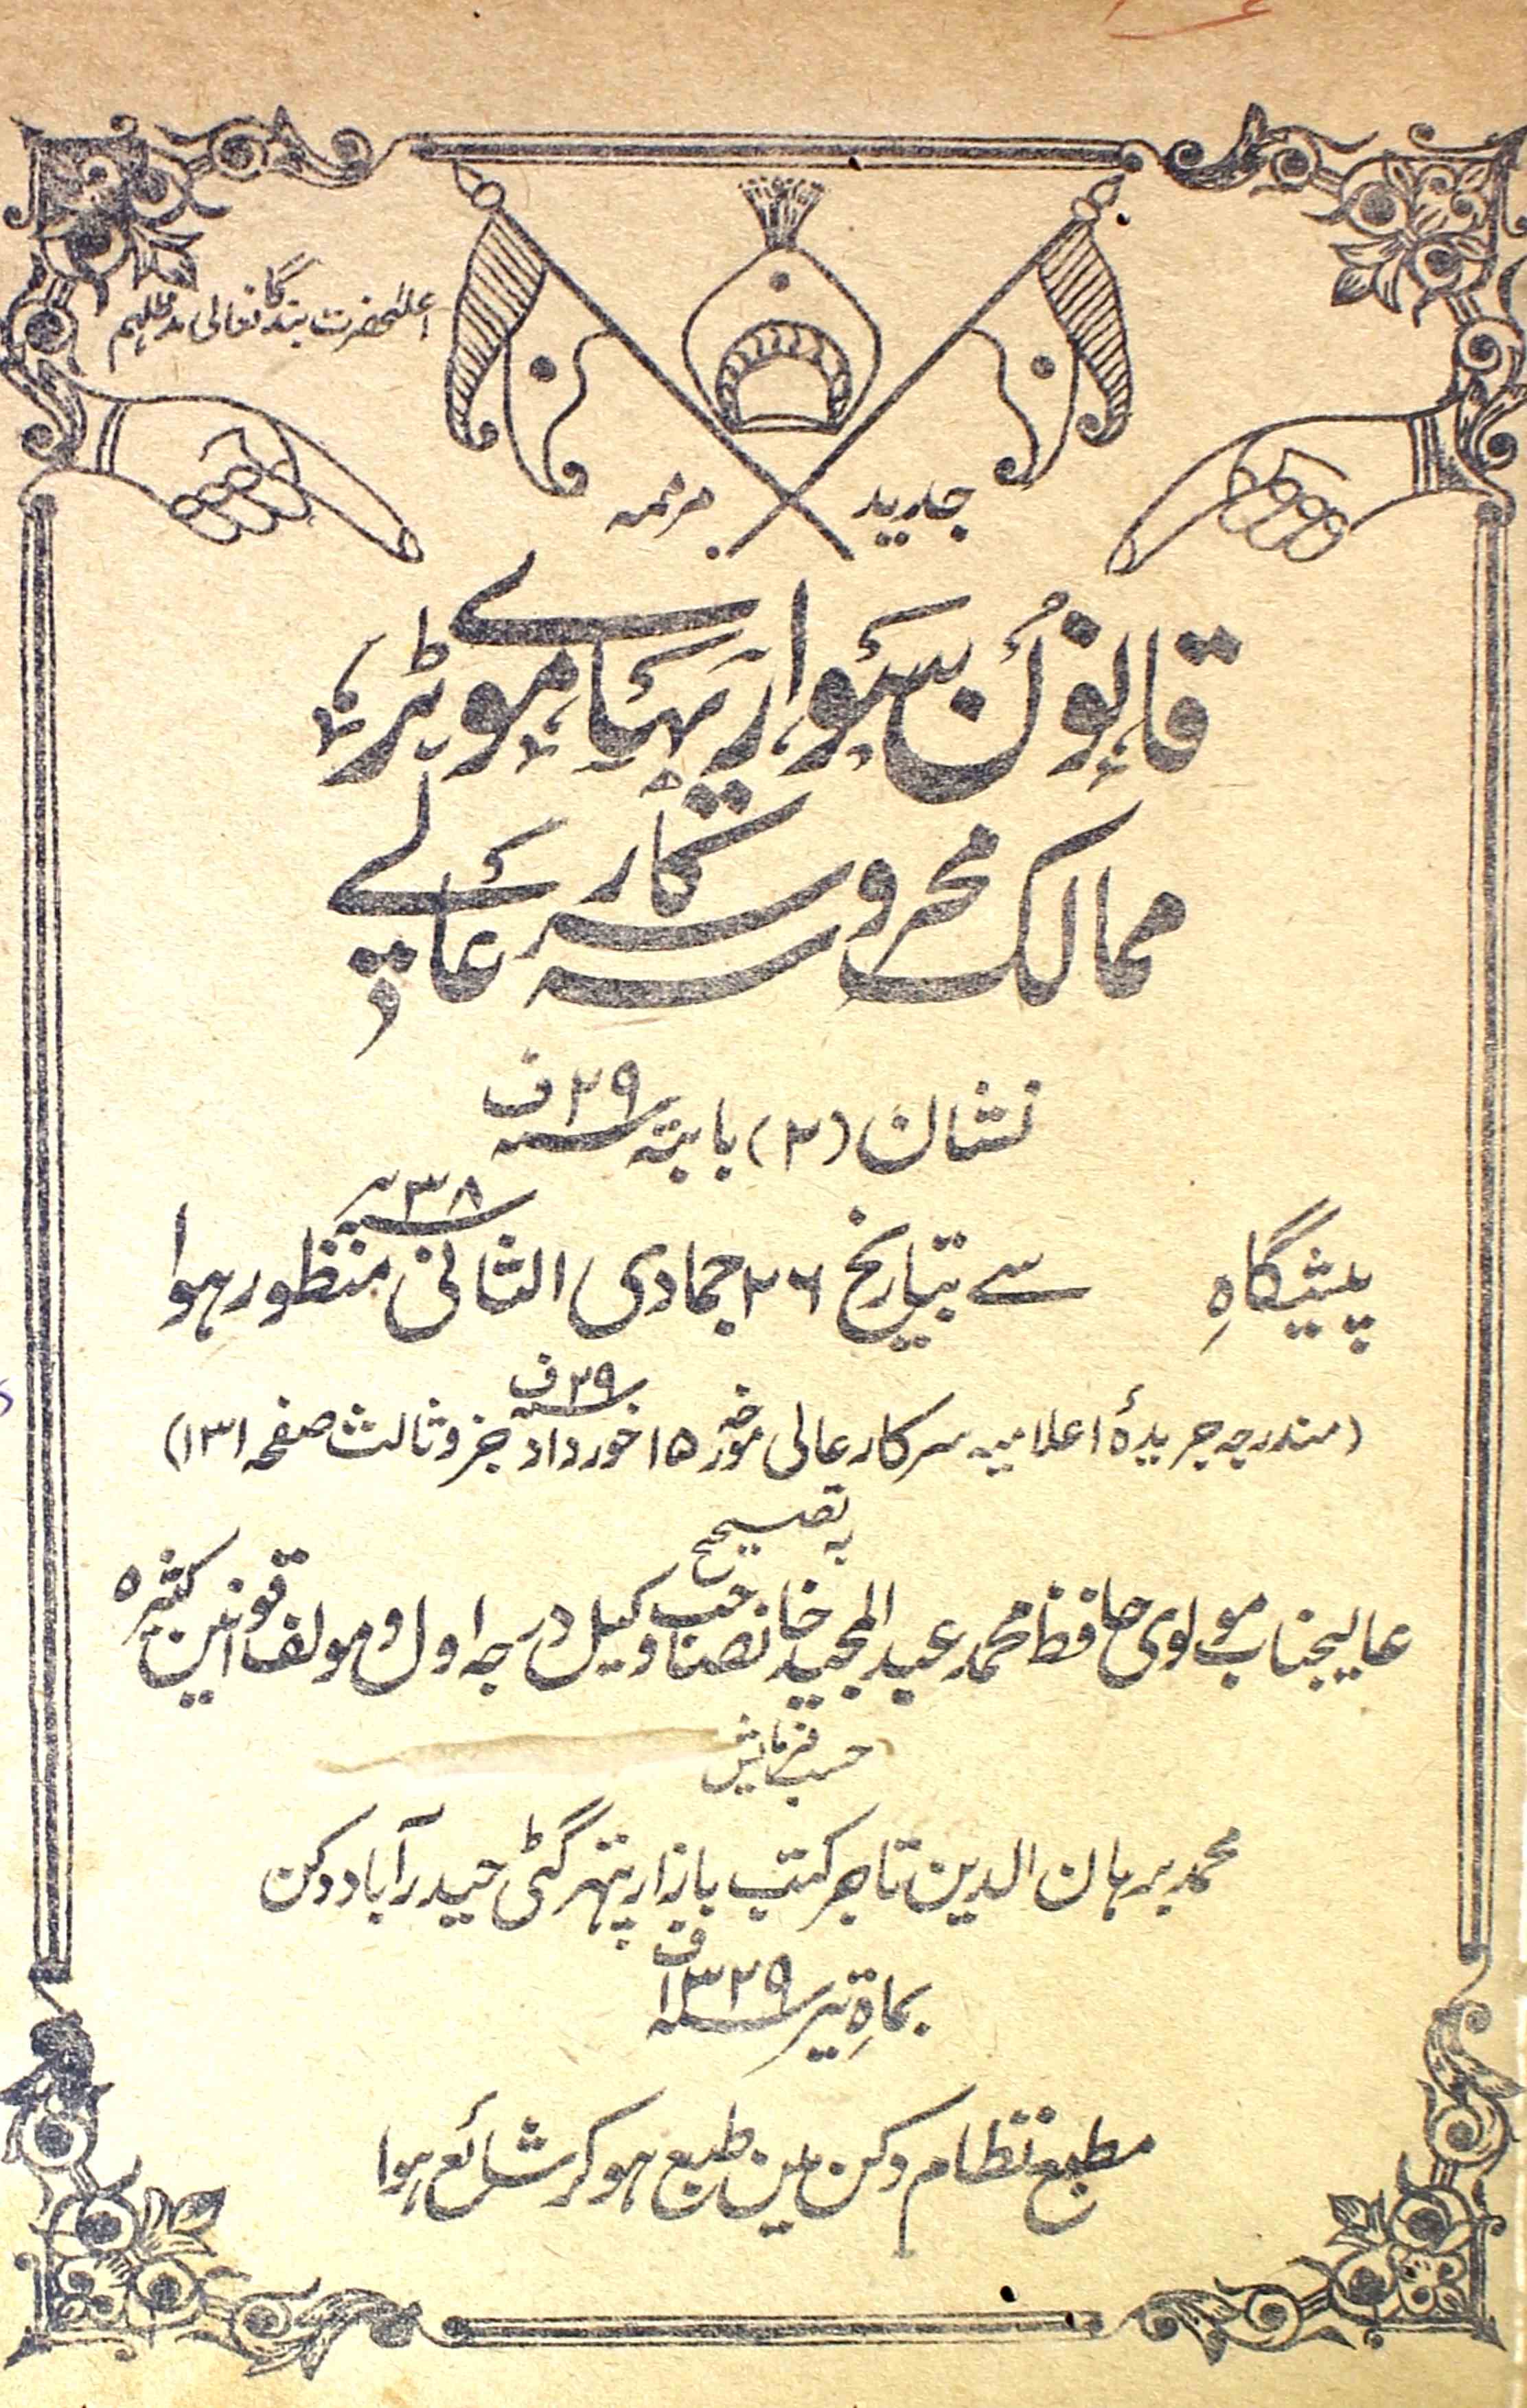 اعلٰحضرت بندگانعالی مدظلہم
جدید مرممہ
قانون سواریہائے موٹر
ممالک محروسہ سرکار عالی
نشان (۲) بابتہ ۲۹ف
پیشگاہِ سے بتاریخ ۲۶ جمادی الثانی ۳۸ھ منظور ہوا
(مندرجہ جریدۂ اعلامیہ سرکار عالی مورخہ ۱۵ خورداد ۲۹ف جزو ثالث صفحہ ۱۳۱)
بہ تصیح
عالیجناب مولوی حافظ محمد عبد المجید خانصاحب وکیل درجہ اول و مولف قوانین کثیرہ
حسب فرمایش
محمد برہان الدین تاجر کتب بازار پتھر گٹی حیدرآباد دکن
بماہِ تیر ۱۳۲۹ف
مطبع نظام دکن مین طبع ہو کر شائع ہوا